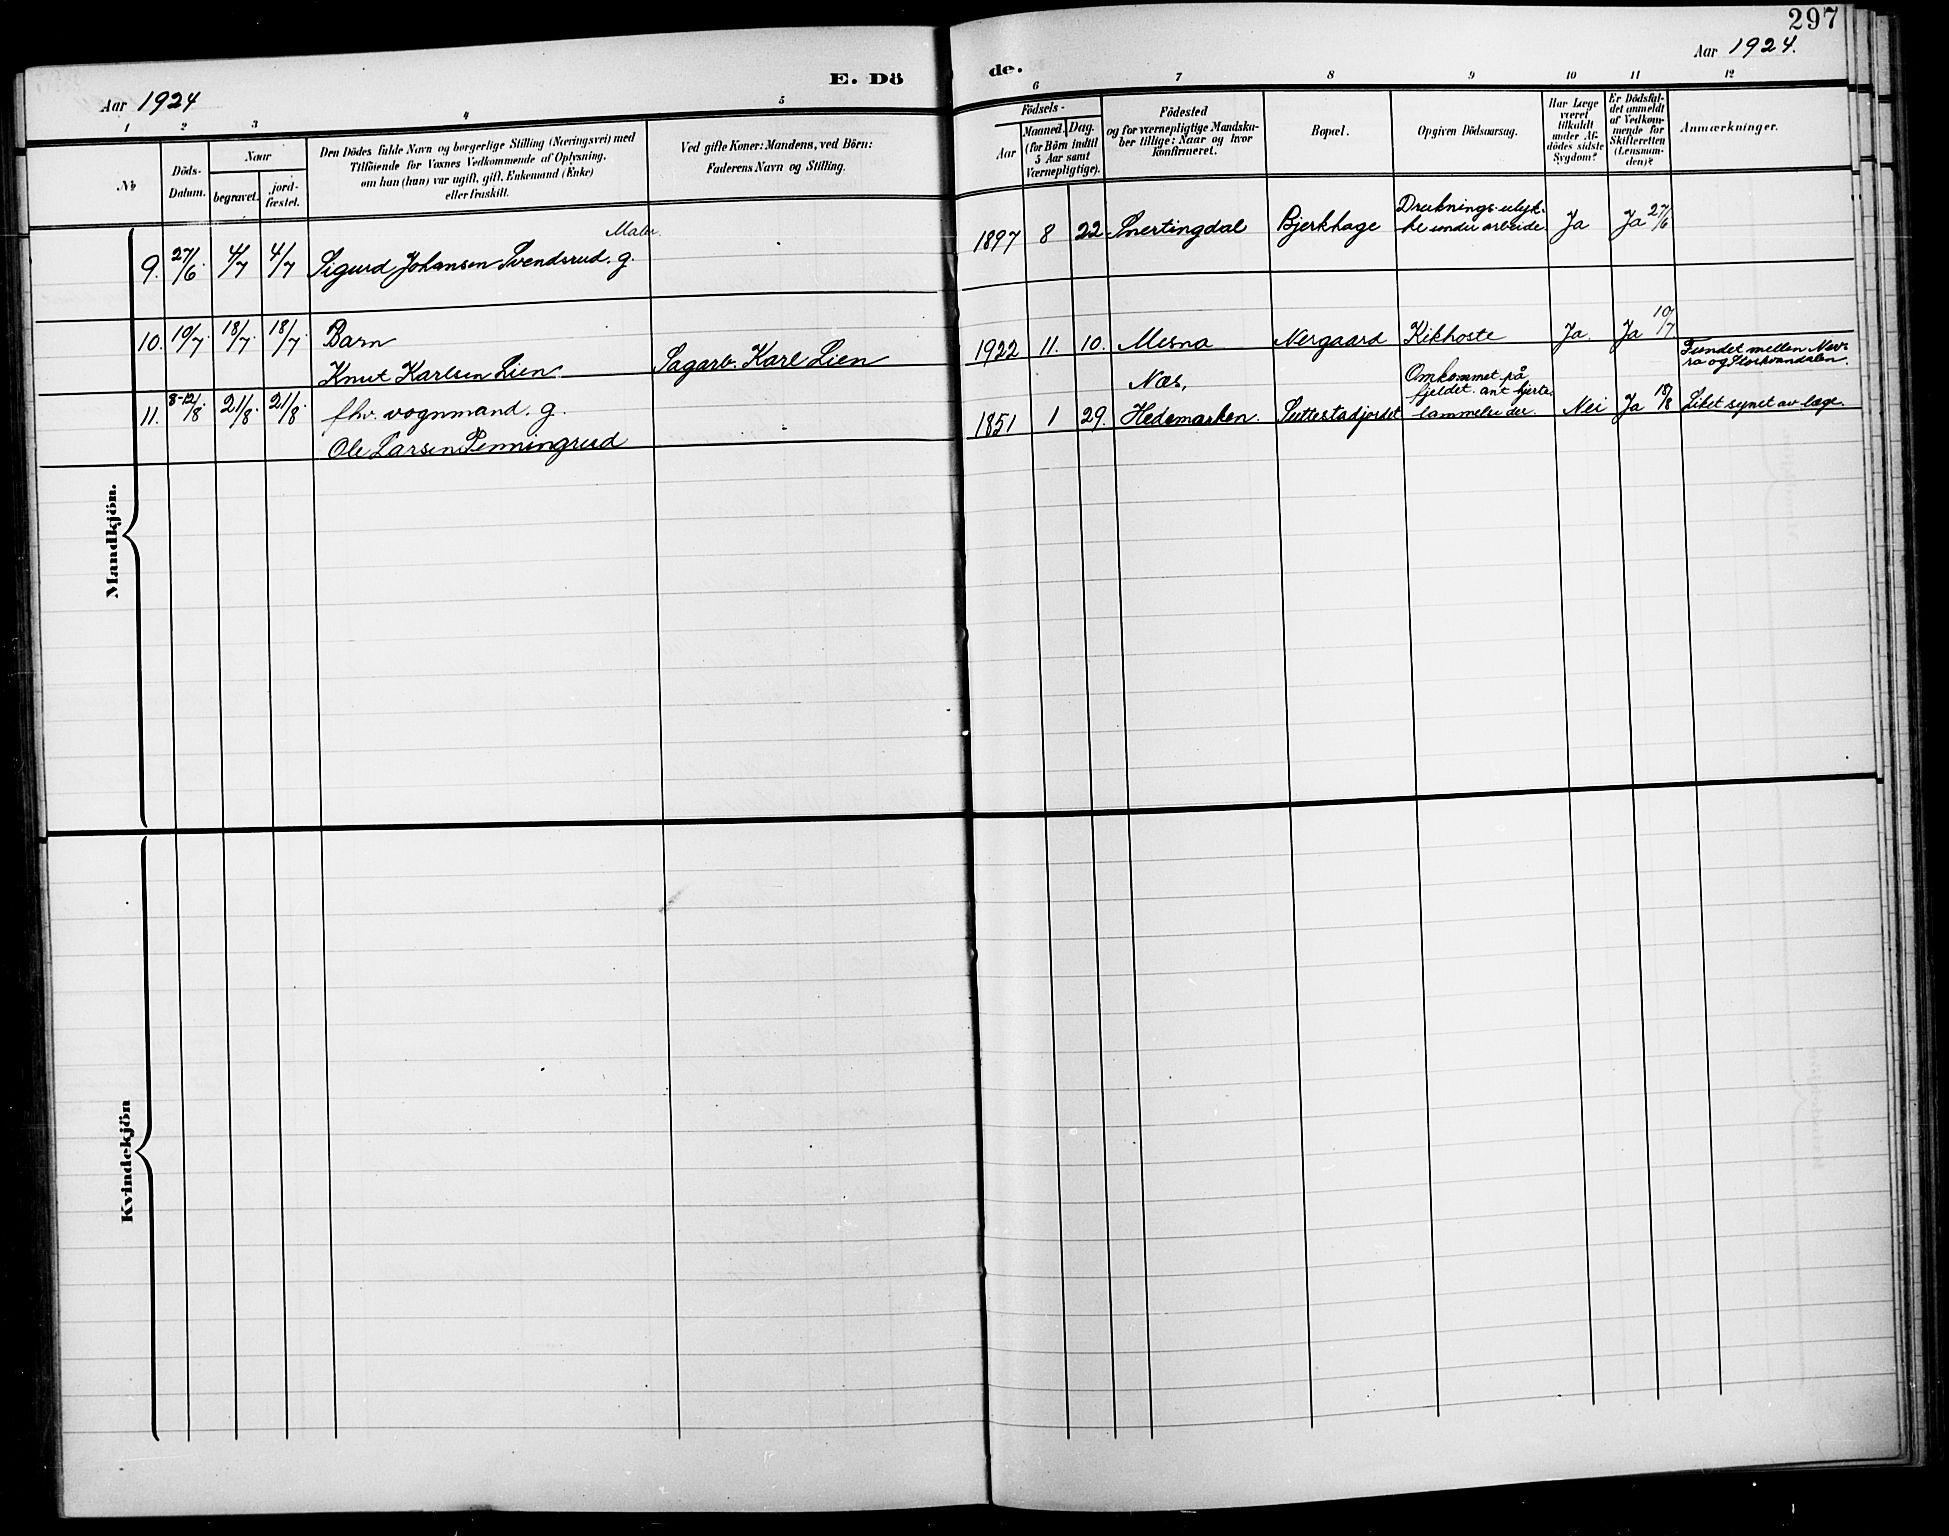 297
E. Dö
de.
Aar 1924
Aar 1924.
1 2 3 4 5 6 7 8 9 10 11 12
No
Döds-
Datum.
Naar
begravet.
jord-
fæstet.
Den Dödes fulde Navn og borgerlige Stilling (Næringsvei) med
Tilföiende for Voxnes Vedkommende af Oplysning,
om han (hun) var ugift, gift, Enkemand (Enke)
eller fraskilt.
Ved gifte Koner: Mandens, ved Börn:
Faderens Navn og Stilling.
Födsels-
Aar
Maaned. Dag.
(for Börn indtil
5 Aar samt
Værnepligtige).
Födested
og for værnepligtige Mandska-
ber tillige: Naar og hvor
konfirmeret.
Bopæl.
Opgiven Dödsaarsag.
Har Læge
været
tilkaldt
under Af-
dödes sidste
Sygdom?
Er Dödsfal-
det anmeldt
af Vedkom-
mende for
Skifteretten
(Lensman-
den)?
Anmærkninger.
Mandkjön.
9. 27/6. 4/7 4/7
Maler.
Sigurd Johansen Svendsrud. g.
1897 8 22 Snertingdal Bjerkhage
Drukningsulyk-
ke under arbeide.
Ja Ja 27/6
10. 10/7. 18/7. 18/7.
Barn
Knut Karlsen Lien.
Sagarb. Karl Lien
1922 11. 10. Mesna Nergaard Kikhoste Ja. Ja 10/7
11. 8-12/8. 21/8. 21/8.
fhv. vognmand. g.
Ole Larsen Penningrud
1851 1 29.
Næs,
Hedemarken.
Suttestadjordet
Omkommet på
fjeldet. ant hjerte-
lammelse der.
Nei Ja 18/8
Fundet mellen Nev-
ra og Storkvandalen.
Liket synet av læge.
Kvindekjön